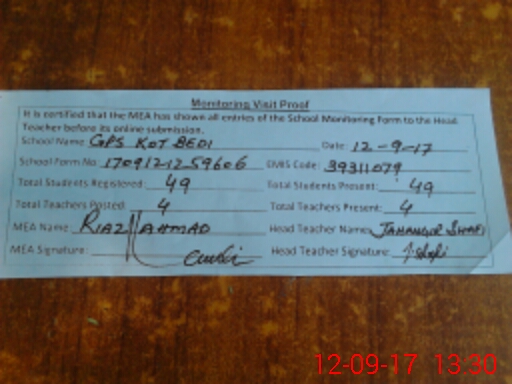 Monitoring Visit Proof
It is certified that the MEA has shown all entries of the School Monitoring Form to the Head
Teacher before its online submission.
School Name: GPS KOT BEDI Date: 12-9-17
School Form No: 170912-12-59606 EMIS Code: 39311079
Total Students Registered: 49 Total Students Present: 49
Total Teachers Posted: 4 Total Teachers Present: 4
MEA Name: RIAZ AHMAD Head Teacher Name:
MEA Signature: Head Teacher Signature:
12-09-17 13:30